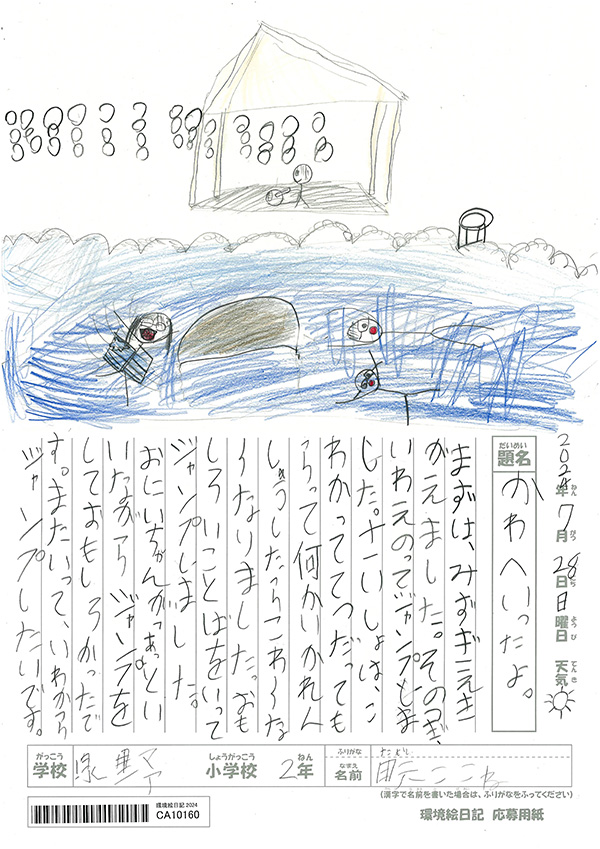 2024年7月28日日曜日 天気
ねん がつ にち ようび てんき
だいめい
題名 かわへいったよ。
まずは、みずぎにき
がえました。そのつぎ、
いわえのってジャンプしま
した。さいしょは、こ
わかっててつだっても
らって何かいかれん
しゅうしたらこわくな
くなりました。おも
しろいことばをいって
ジャンプしました。
おにいちゃんが
いながらジャンプを
しておもしろかったで
す。またいって、いわから
ジャンプしたいです。
がっこう しょうがっこう ねん ふりがな
学校 小学校 2年 なまえ 名前 ここね
(漢字で名前を書いた場合は、ふりがなをふってください)
環境絵日記 2024
CA10160
環境絵日記 応募用紙